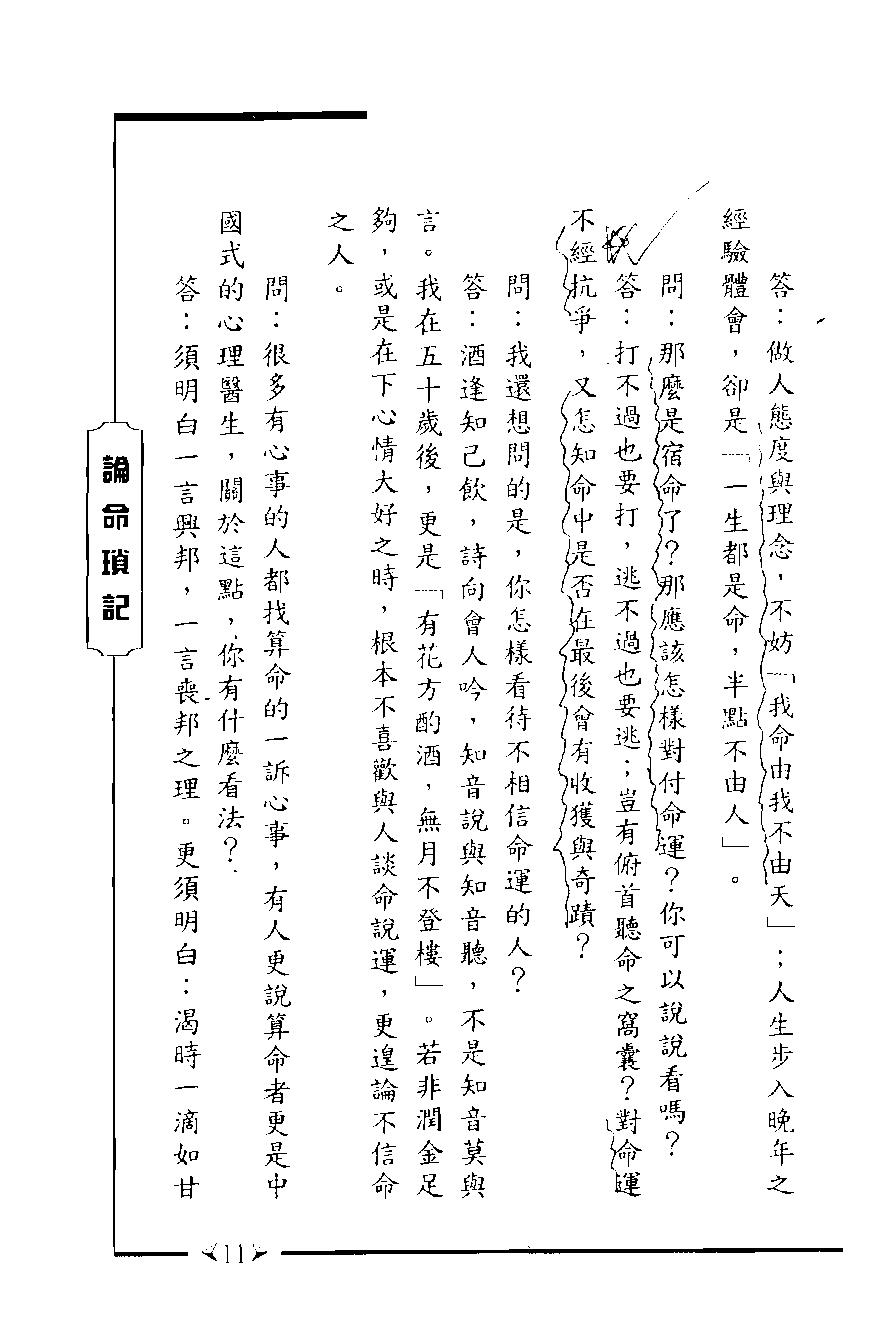 答：做人態度與理念，不妨「我命由我不由天」；人生步入晚年之
經驗體會，卻是「一生都是命，半點不由人」。
問：那麼是宿命了？那應該怎樣對付命運？你可以說說看嗎？
答：打不過也要打，逃不過也要逃；豈有俯首聽命之窩囊？對命運
不經抗爭，又怎知命中是否在最後會有收獲與奇蹟？
問：我還想問的是，你怎樣看待不相信命運的人？
答：酒逢知己飲，詩向會人吟，知音說與知音聽，不是知音莫與
言。我在五十歲後，更是「有花方酌酒，無月不登樓」。若非潤金足
夠，或是在下心情大好之時，根本不喜歡與人談命說運，更遑論不信命
之人。
問：很多有心事的人都找算命的一訴心事，有人更說算命者更是中
國式的心理醫生，關於這點，你有什麼看法？
答：須明白一言興邦，一言喪邦之理。更須明白：渴時一滴如甘
論命瑣記
11